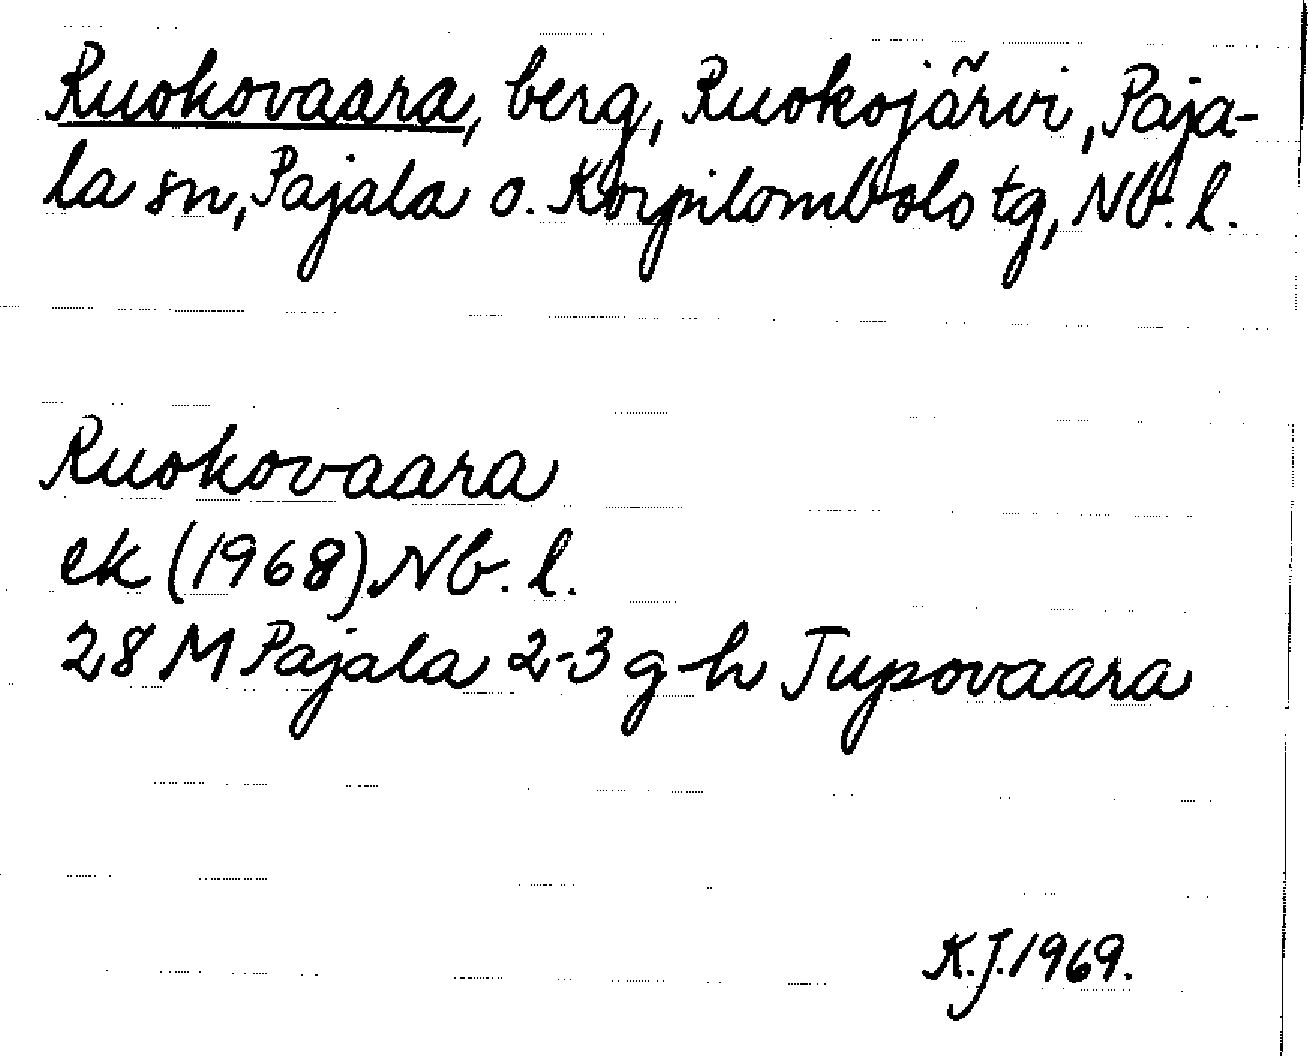 Ruokovaara, berg, Ruokojärvi, Paja-
la sn, Pajala o. Korpilombolo tg, Nb. l.
Ruokovaara
ek (1968) Nb. l.
28 M Pajala 2-3 g-h Jupovaara
K.J. 1969.